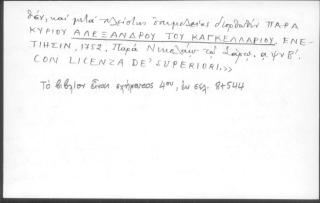 θέν, καὶ μετὰ πλείστης ἐπιμελείας διορθωθὲν ΠΑΡΑ
ΚΥΡΙΟΥ ΑΛΕΞΑΝΔΡΟΥ ΤΟΥ ΚΑΓΚΕΛΛΑΡΙΟΥ. ΕΝΕ-
ΤΙΗΣΙΝ, 1752. Παρὰ Νικολάῳ τῷ Σάρῳ. αψνβ'.
CON LICENZA DE' SUPERIORI.>>
Τὸ βιβλίον εἶναι σχήματος 4ου, ἐκ σελ. 8+544